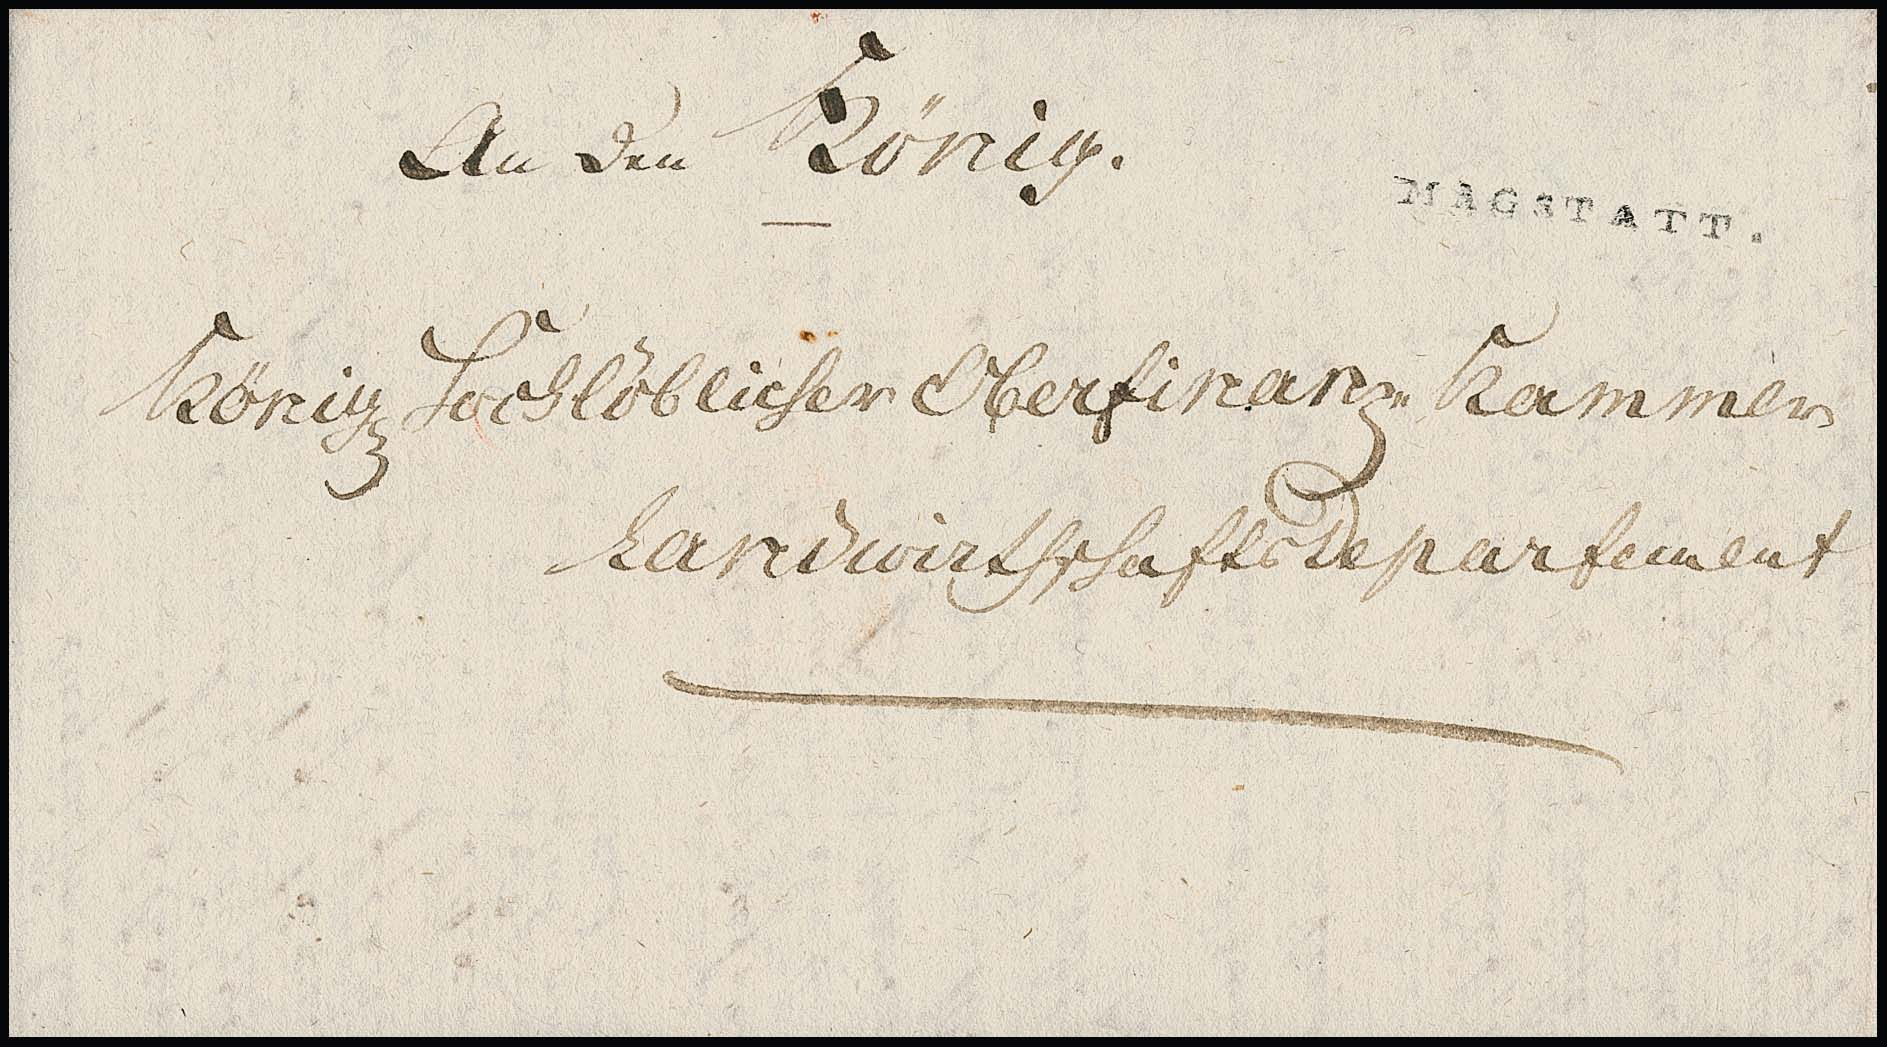 An den König.
MAGSTATT.
König. Hochlöblicher Oberfinanz-Kammer
Landwirthschafts Departement